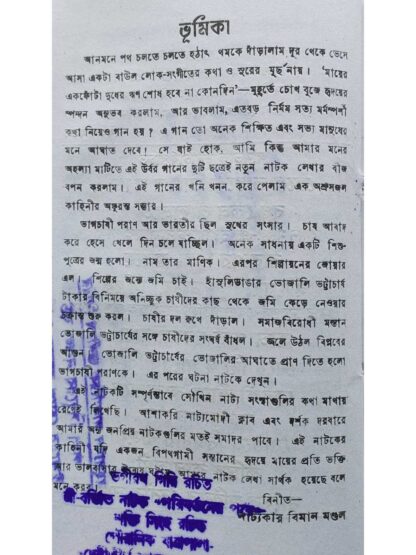 ভূমিকা
আনমনে পথ চলতে চলতে হঠাৎ থমকে দাঁড়ালাম দূর থেকে ভেসে
আসা একটা বাউল লোক-সংগীতের কথা ও সুরের মূর্ছনায়। 'মায়ের
একফোঁটা দুধের ঋণ শোধ হবে না কোনদিন'—মুহূর্তে চোখ বুজে হৃদয়ের
স্পন্দন অনুভব করলাম, আর ভাবলাম, এতবড় নির্মম সত্য মর্মস্পর্শী
কথা নিয়েও গান হয়? এ গান তো অনেক শিক্ষিত এবং সভ্য মানুষের
মনে আঘাত দেবে! সে যাই হোক, আমি কিন্তু আমার মনের
অহল্যা মাটিতে এই উর্বর গানের দুটি ছত্রেই নতুন নাটক লেখার বীজ
বপন করলাম। এই গানের খনি খনন করে পেলাম এক অশ্রুসজল
কাহিনীর অফুরন্ত সম্ভার।
ভাগচাষী পরাণ আর ভারতীর ছিল সুখের সংসার। চাষ আবাদ
করে হেসে খেলে দিন চলে যাচ্ছিল। অনেক সাধনায় একটি শিশু-
পুত্রের জন্ম হলো। নাম তার মাণিক। এরপর শিল্পায়নের জোয়ার
এল। শিল্পের জন্যে জমি চাই। হাঁসুলিডাঙার ভোজালি ভট্টাচার্য
টাকার বিনিময়ে অনিচ্ছুক চাষীদের কাছ থেকে জমি কেড়ে নেওয়ার
চক্রান্ত শুরু করল। চাষীর দল রুখে দাঁড়াল। সমাজবিরোধী মস্তান
ভোজালি ভট্টাচার্যের সঙ্গে চাষীদের সংঘর্ষ বাঁধল। জ্বলে উঠল বিপ্লবের
আগুন ভোজালি ভট্টাচার্যের ভোজালির আঘাতে প্রাণ দিতে হলো
ভাগচাষী পরাণকে। এর পরের ঘটনা নাটকে দেখুন।
এই নাটকটি সম্পূর্ণভাবে সৌখিন নাট্য সংস্থাগুলির কথা মাথায়
রেখেই লিখেছি। আশাকরি নাট্যমোদী ক্লাব এবং দর্শক দরবারে
আমার অন্য জনপ্রিয় নাটকগুলির মতই সমাদর পাবে। এই নাটকের
কাহিনী যদি একজন বিপথগামী সন্তানের হৃদয়ে মায়ের প্রতি ভক্তি
আর ভালবাসা আমার নাটক লেখা সার্থক হয়েছে বলে
মনে করব।
বিনীত—
নাট্যকার বিমান মণ্ডল
রচিত
নাটক
রচিত